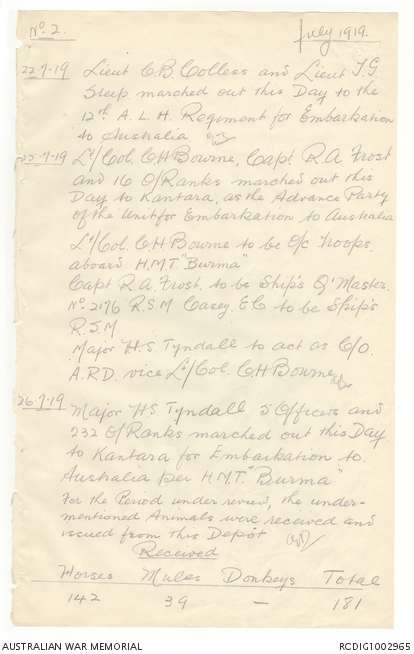 No. 2.
July 1919.
22-7-19 Lieut C.B Colless and Lieut T.G
marched out this Day to the
12th A. L. H. Regiment for Embarkation
to Australia
25-7-19 Lt/Col. C H Bourne, Capt. R. A Frost
and 16 O/Ranks marched out this
Day to Kantara, as the Advance Party
of the Unit for Embarkation to Australia
Lt/Col. C H Bourne to be O/c Troops.
aboard H.M.T "Burma"
Capt R. A. Frost. to be Ship's Q'Master.
No. 2176 R.S.M Casey E C to be Ship's
R.S.M
Major H. S. Tyndall to act as C/O.
A. R. D. vice Lt/Col. C H Bourne
26-7-19 Major H S Tyndall 5 Officers and
232 O/Ranks marched out this Day
to Kantara for Embarkation to
Australia per H.M.T. "Burma"
For the Period under review, the under-
mentioned Animals were received and
issued from this Depot
Received
Horses Mules Donkeys Total
142 39 - 181
AUSTRALIAN WAR MEMORIAL
RCDIG1002965